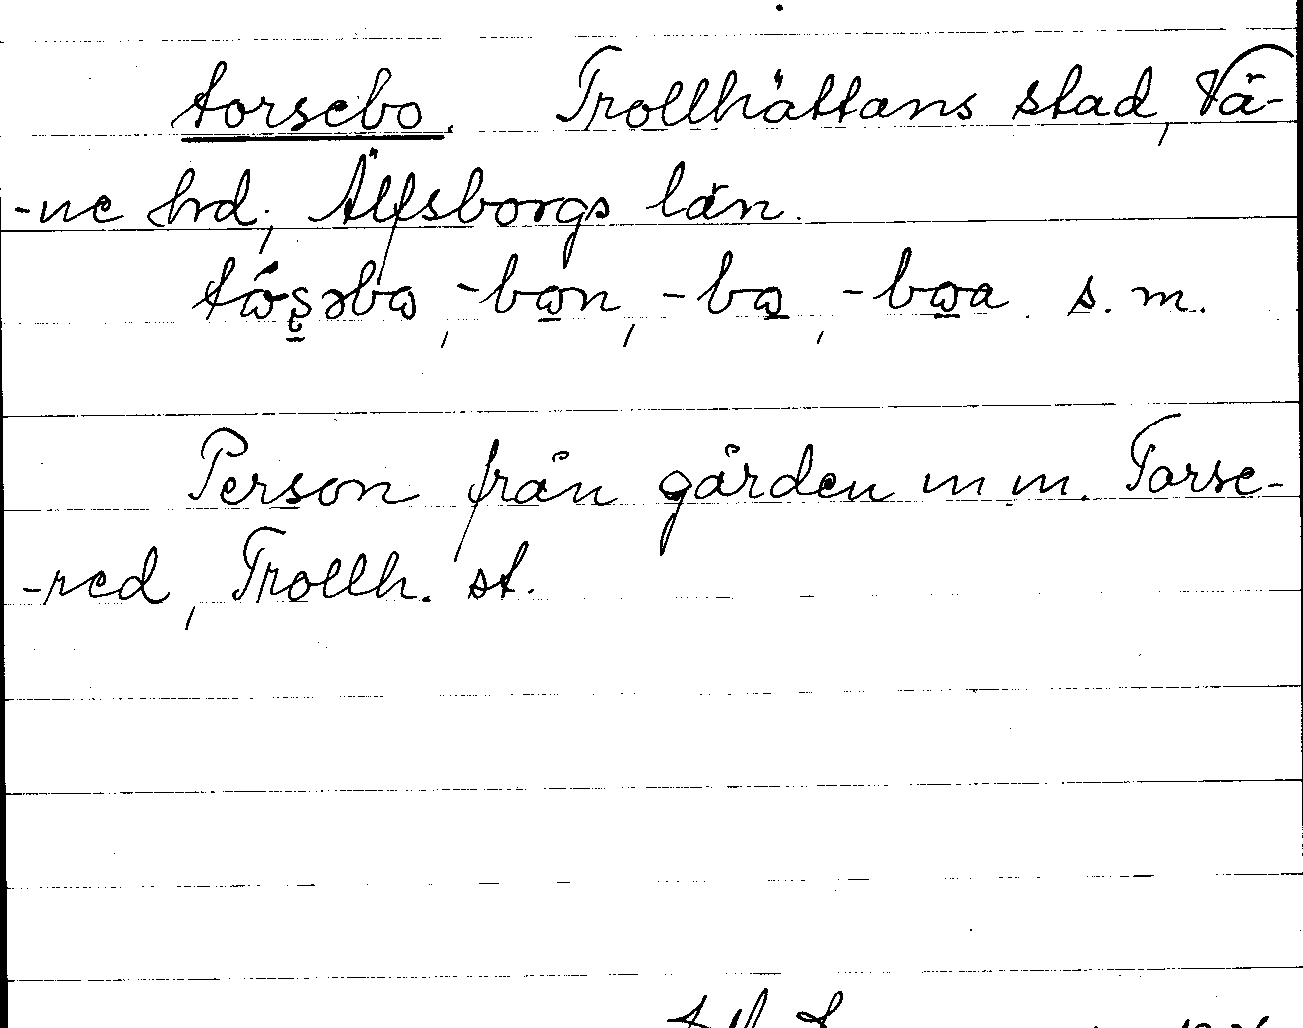 torsebo. Trollhättans stad, Vä-
-ne hrd, Älfsborgs län.
-bo̲n, -bo̲, -bo̲a s. m.
Person från gården m m. Torse-
-red, Trollh. st.